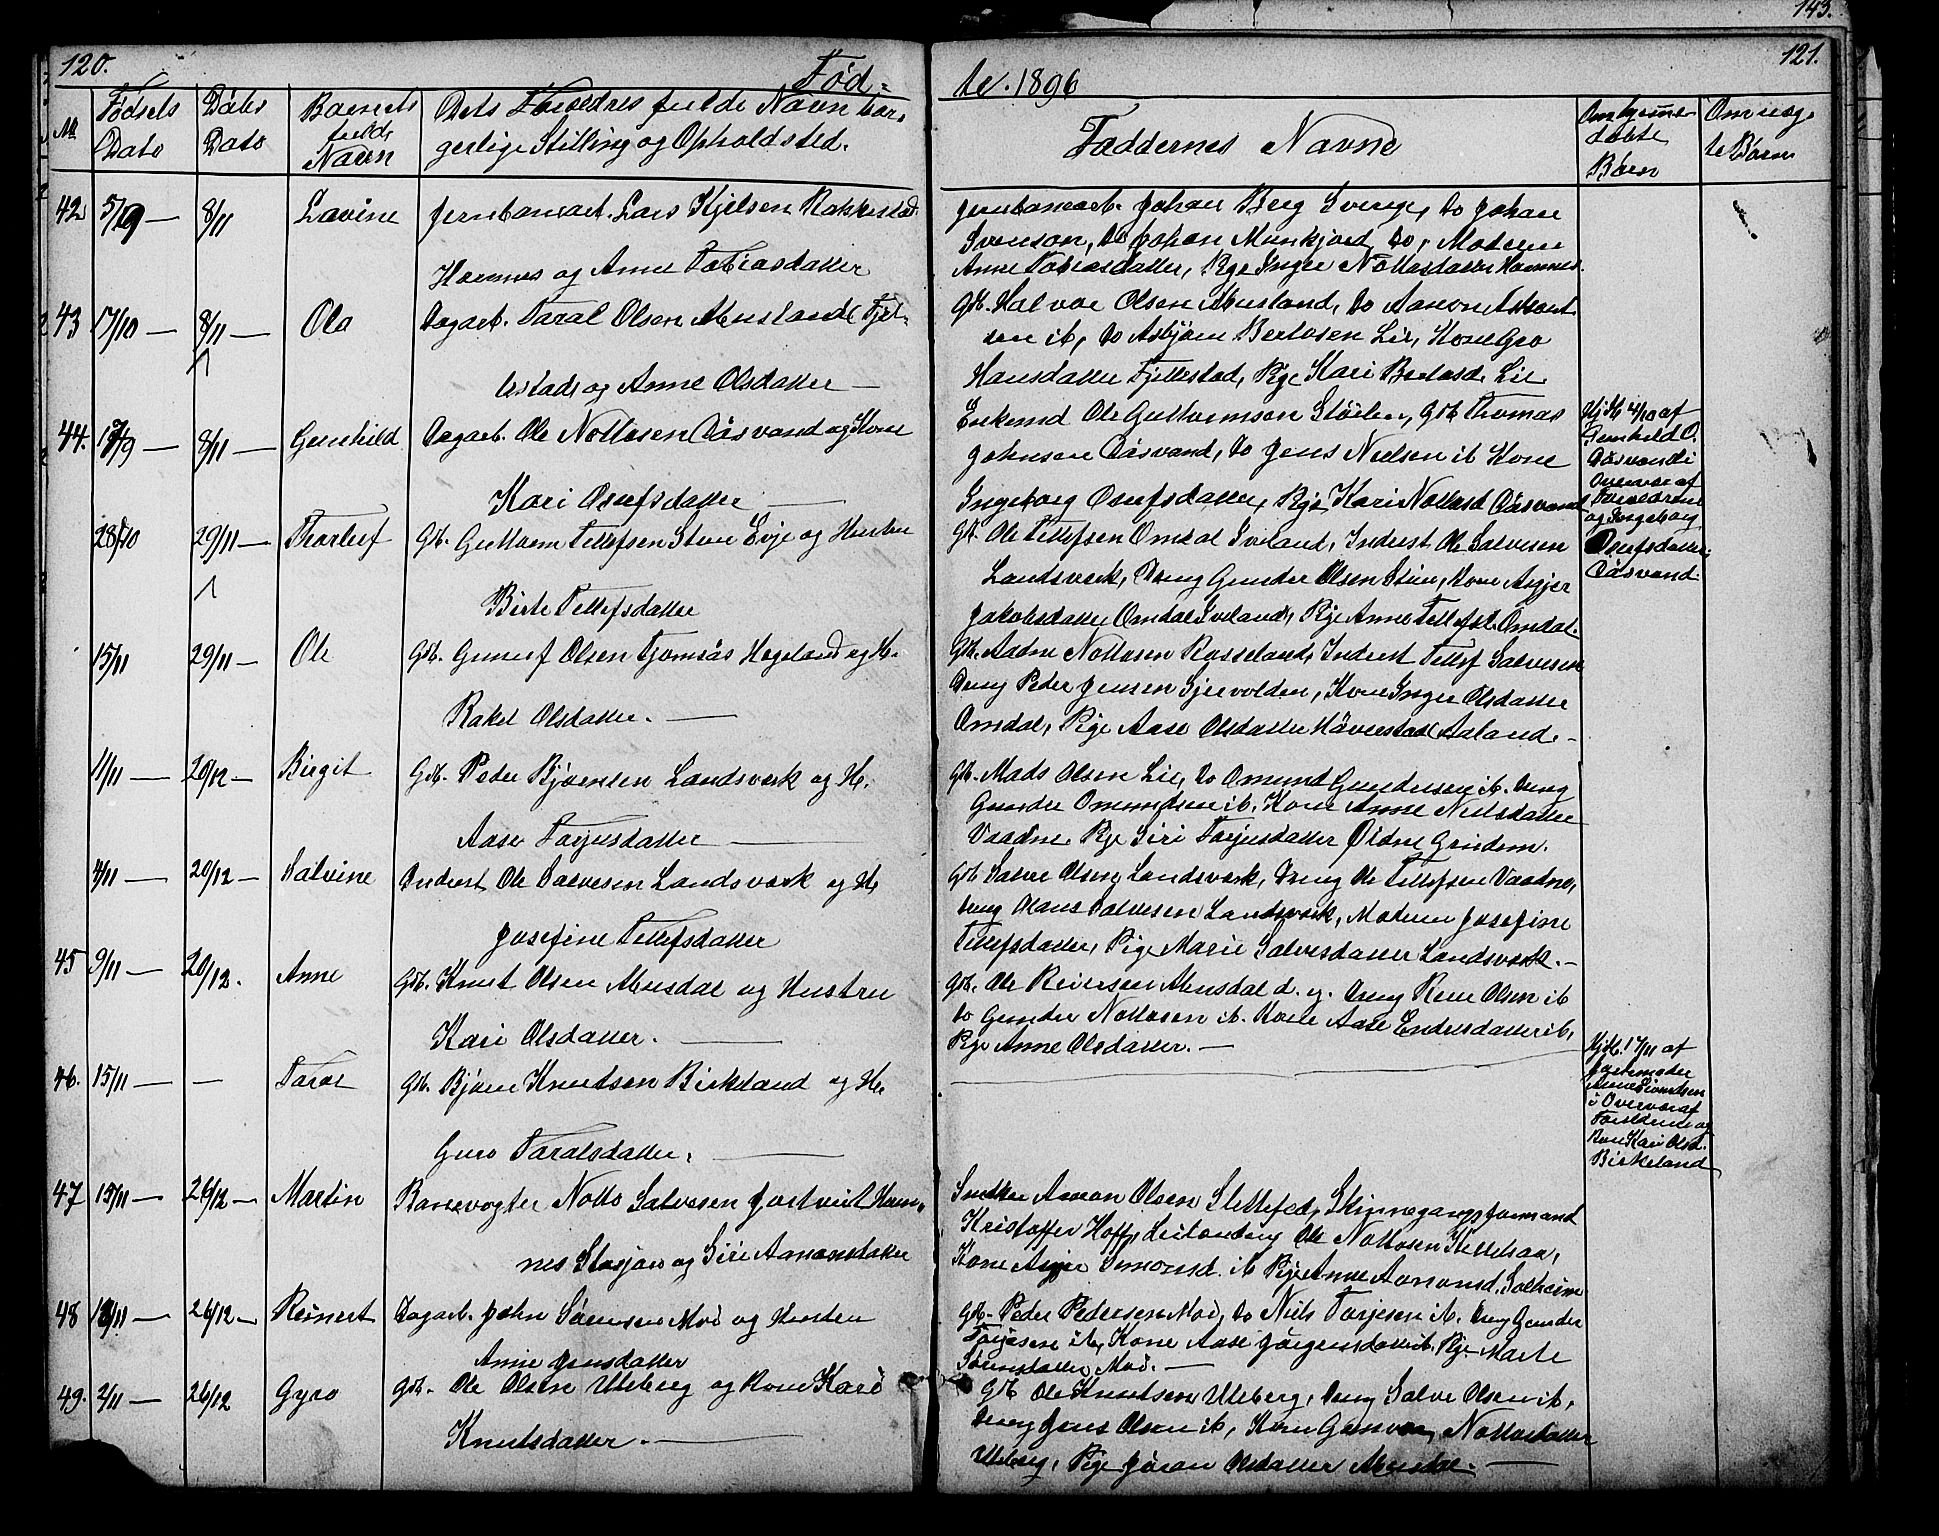 120.
Fød-
143.
121.
te. 1896
№
Fødsels
Dato
Døbs
Dato
Barnets
fulde
Navn
Dets Forældres fulde Navn bor-
gerlige Stilling og Opholdsted.
Faddernes Navne
Om hjemme
døbte
Børn
Om uæg-
te Børn
42 5/9 — 8/11 Lavine Jernbanearb. Lars Kjelsen Rakkestad
Hornnes og Anne Tobiasdatter
Jernbanearb. Johan Berg Sverige, do Johan
Svenson, do Johan Munkjord do, Moderen
Anne Tobiasdatter, Pige Inger Nottosdatter Hornnes.
43 17/10 — 8/11 — Ola Dagarb. Taral Olsen Abusland Fjel-
lestad og Anne Olsdatter —
Gdb. Halvor Olsen Abusland, do Aanon
sen ib, do Asbjørn Bertosen Lie, Kone Gro
Hansdatter Fjellestad, Pige Kari Bertosd. Lie
44. 17/9 — 8/11 — Gunhild Dagarb. Ole Nottosen Aasvand og Kone
Kari Olufsdatter —
Enkemd Ole Guttormson Støilen, Gdb Thomas
Johnsen Aasvand, do Jens Nielsen ib Kone
Ingeborg Olufsdatter, Pige Kari Nottosd Aasvand
Hjdb 4/10 af
Gunhild O.
Aasvand i
Overvær af
Forældrene
og Ingeborg
Olufsdatter
Aasvand.
28/10 29/11 — Thorleif Gb. Guttorm Tellefsen Stene Evje og Hustru
Birte Tellefsdatter
Gb. Ole Tellefsen Omdal Iveland, Inderst Ole Salvesen
Landsverk, Dreng Gunder Olsen Stene, Kone Asgjer
Jakobsdatter Omdal Iveland, Pige Anne Tellefsd. Omdal.
15/11 29/11 — Ole Gdb. Gunuf Olsen Tjomsaas Hegeland og H.
Rakel Olsdatter. —
Gdb. Aadne Nottosen Rosseland, Inderst Tellef Salvesen
Dreng Peder Jensen Gjervolden, Kone Inger Olsdatter
Omdal, Pige Aase Olsdatter Haaverstad Aaland. —
1/11 — 20/12 — Birgit Gdb. Peder Bjørnsen Landsverk og H.
Aase Torjusdatter —
Gdb. Mads Olsen Lie, do Omund Gundersen ib. Dreng
Gunder Omundsen ib. Kone Anne Nielsdatter
Vaadne Pige Siri Torjusdatter Øidne Grindem.
4/11 — 20/12 — Salvine Inderst Ole Salvesen Landsverk og H.
Josefine Tellefsdatter
Gdb. Salve Olsen Landsverk, Dreng Ole Tellefsen Vaadne,
Dreng Olaus Salvesen Landsverk, Moderen Josefine
Tellefsdatter, Pige Marie Salvesdatter Landsverk. —
45 9/11 — 20/12. Anne Gdb. Knut Olsen Abusdal og Hustru
Kari Olsdatter. —
Gdb. Ole Reiersen Abusdal d. y. Dreng Reier Olsen ib
do Gunder Nottosen ib. Kone Aase Endresdatter ib,
Pige Anne Olsdatter. —
46. 15/11 — — Taral Gb. Bjørn Knudsen Birkeland og H.
Guro Taralsdatter. —
Hjdb. 17/11 af
Jordmoder
Anne Sivertsen
i Overvær af
Forældrene og
Kone Kari Olsd.
Birkeland
47 15/11 — 26/12 — Martin Banevogter Notto Salvesen Jortveit Horn-
nes Stasjon og Siri Aanonsdatter
Snedker Aanon Olsen Slettefed, Skinnegangsformand
Kristoffer Hoff, Leilending Ole Nottosen Kettehaa,
Kone Asgjer Omonsd. ib Pige Anne Aanonsd. Solheim
48 16/11 — 26/12 — Reinert Dagarb. John Sørensen Moi og Hustru
Anne Jensdatter
Gdb. Peder Pedersen Moi, do Niels Torjesen ib. Dreng Gunder
Torjesen ib, Kone Aase Jørgensdatter ib. Pige Marte
Sørensdatter Moi. —
49. 2/11 — 26/12 Gyro Gdb. Ole Olsen Uleberg og Kone Kari
Knutsdatter. —
Gdb Ole Knutsen Uleberg, Dreng Salve Olsen ib,
Dreng Jens Olsen ib, Kone Gunvor Nottosdatter
Uleberg, Pige Jøran Olsdatter Abusdal. —